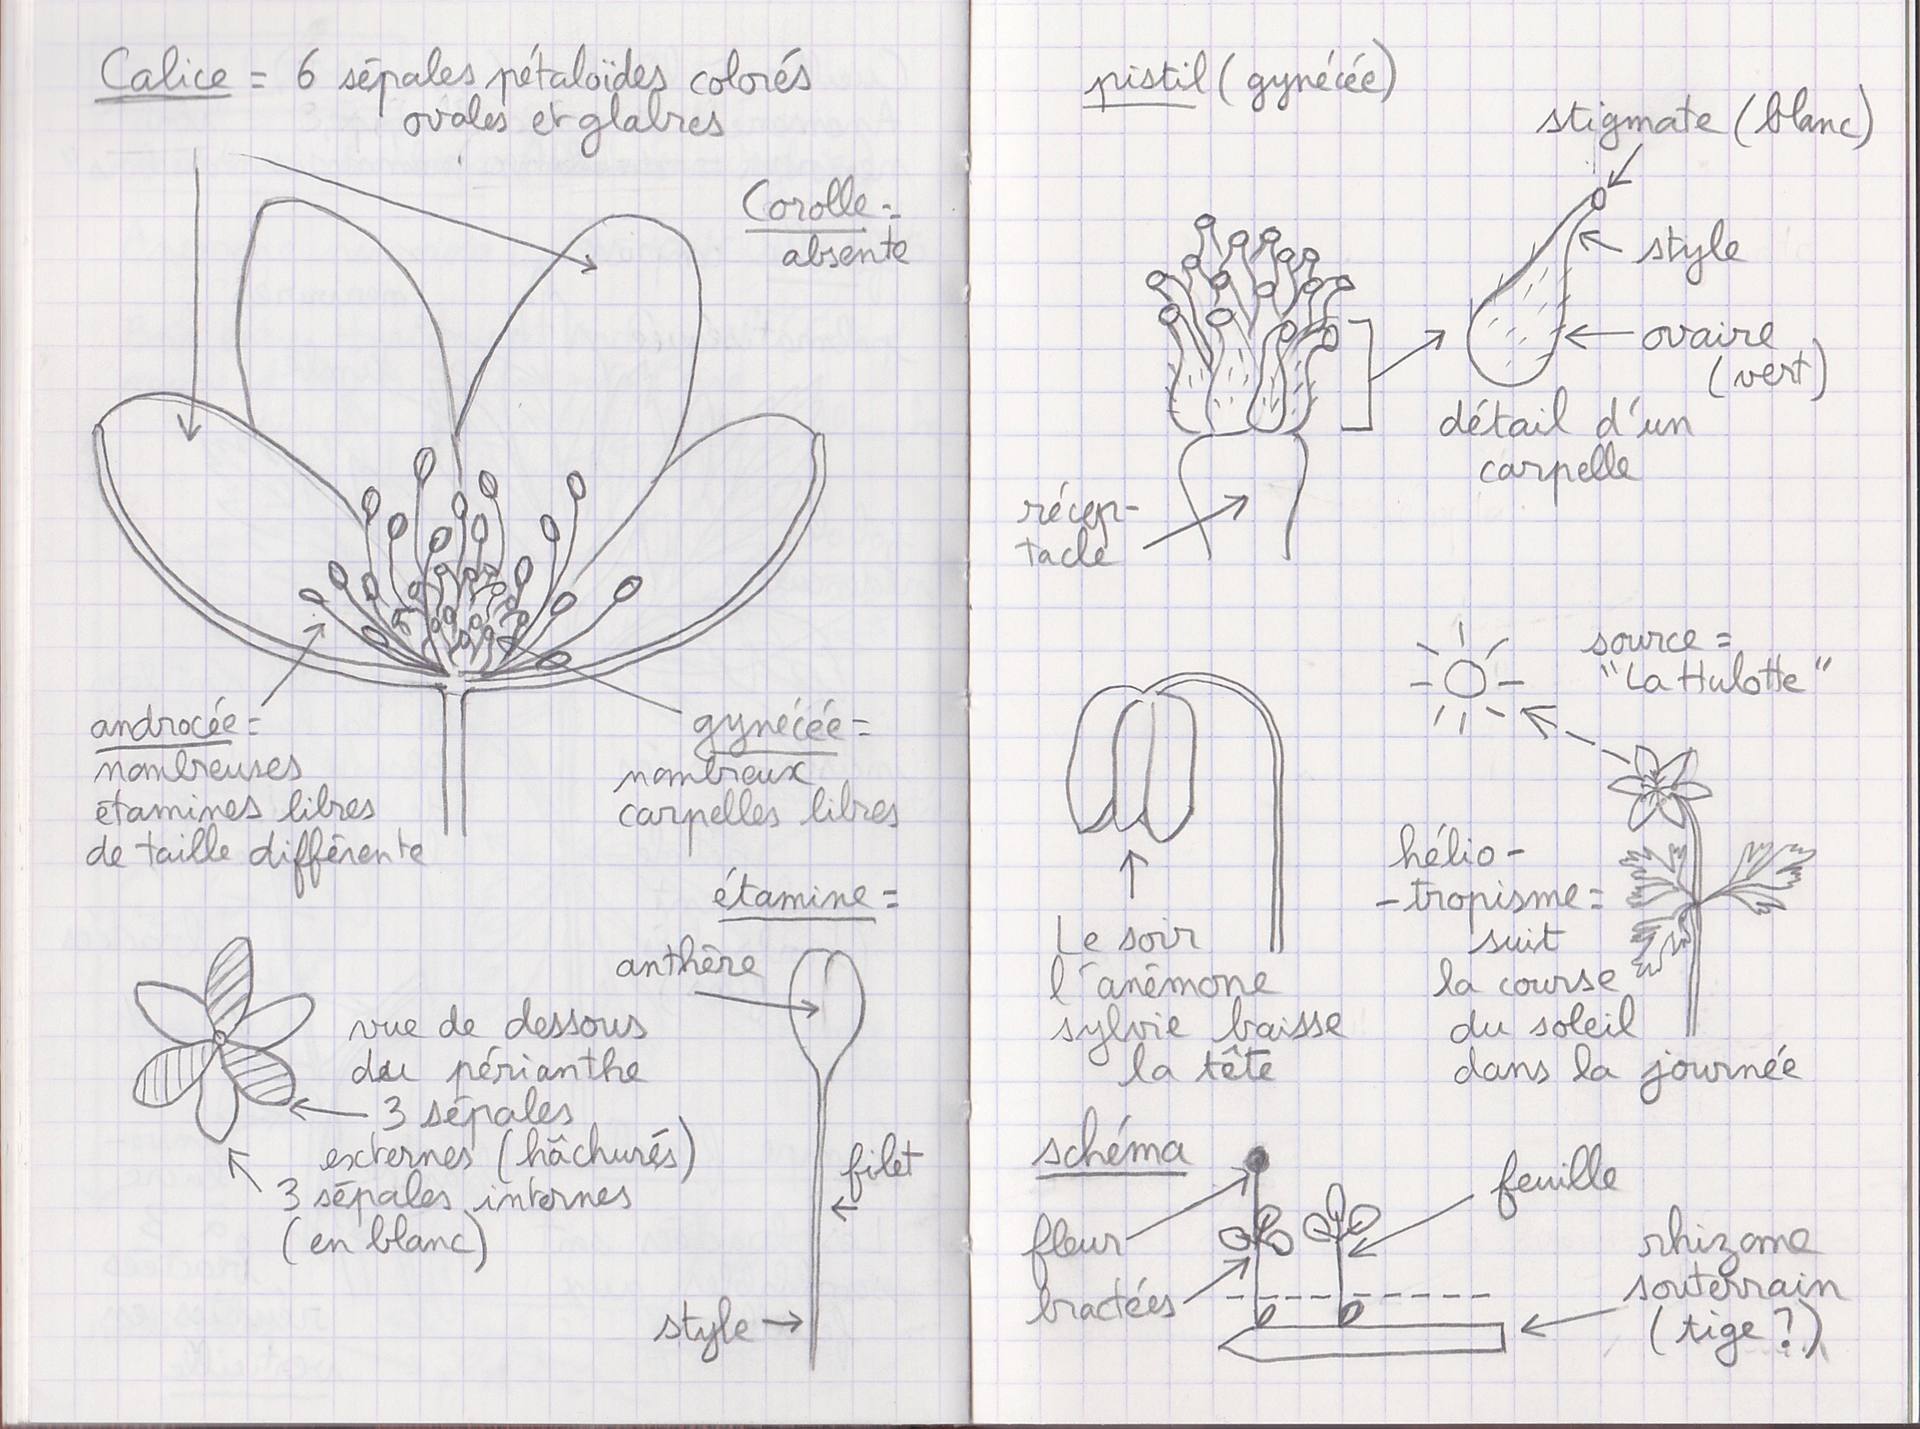 Calice = 6 sépales pétaloïdes colorés
ovales et glabres
Corolle =
absente
androcée =
nombreuses
étamines libres
de taille différente
gynécée =
nombreux
carpelles libres
étamine =
anthère
filet
style
vue de dessous
du périanthe
3 sépales
externes (hâchurés)
3 sépales internes
(en blanc)
pistil (gynécée)
stigmate (blanc)
style
ovaire
(vert)
détail d'un
carpelle
récep-
tacle
source =
"La Hulotte"
Le soir
l'anémone
sylvie baisse
la tête
hélio-
-tropisme =
suit
la course
du soleil
dans la journée
schéma
fleur
bractées
feuille
rhizome
souterrain
(tige ?)